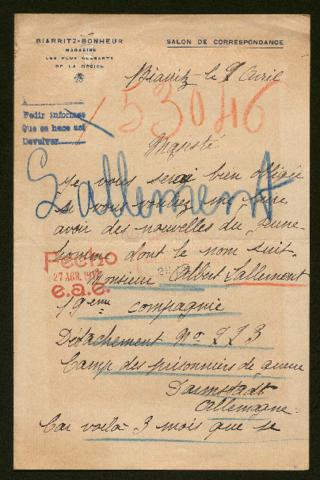 BIARRITZ-BONHEUR
MAGASINS
LES PLUS ÉLÉGANTS
DE LA RÉGION
SALON DE CORRESPONDANCE
Biarritz le 8 Avril
53046
Pedir informes
Que se hace así
Devolver.
Majesté
Je vous serai bien obligée
Lallement
si vous voulez me faire
avoir des nouvelles du jeune
homme dont le nom suit.
Fecho
27 ABR. 1917
e.a.e.
Monsieur Albert Lallement
19ème compagnie
Détachement No 273
Camp des prisonniers de guerre
Darmstadt
Allemagne.
Car voilà 3 mois que je